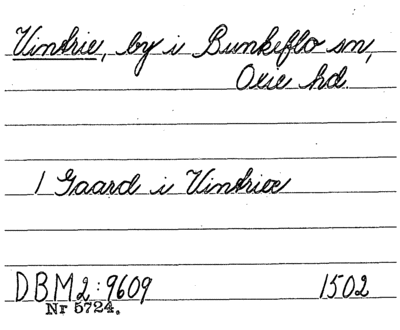 Vintrie, by i Bunkeflo sn,
Oxie hd.
1 Gaard i Vintriee
DBM2:9609 1502
Nr 5724.